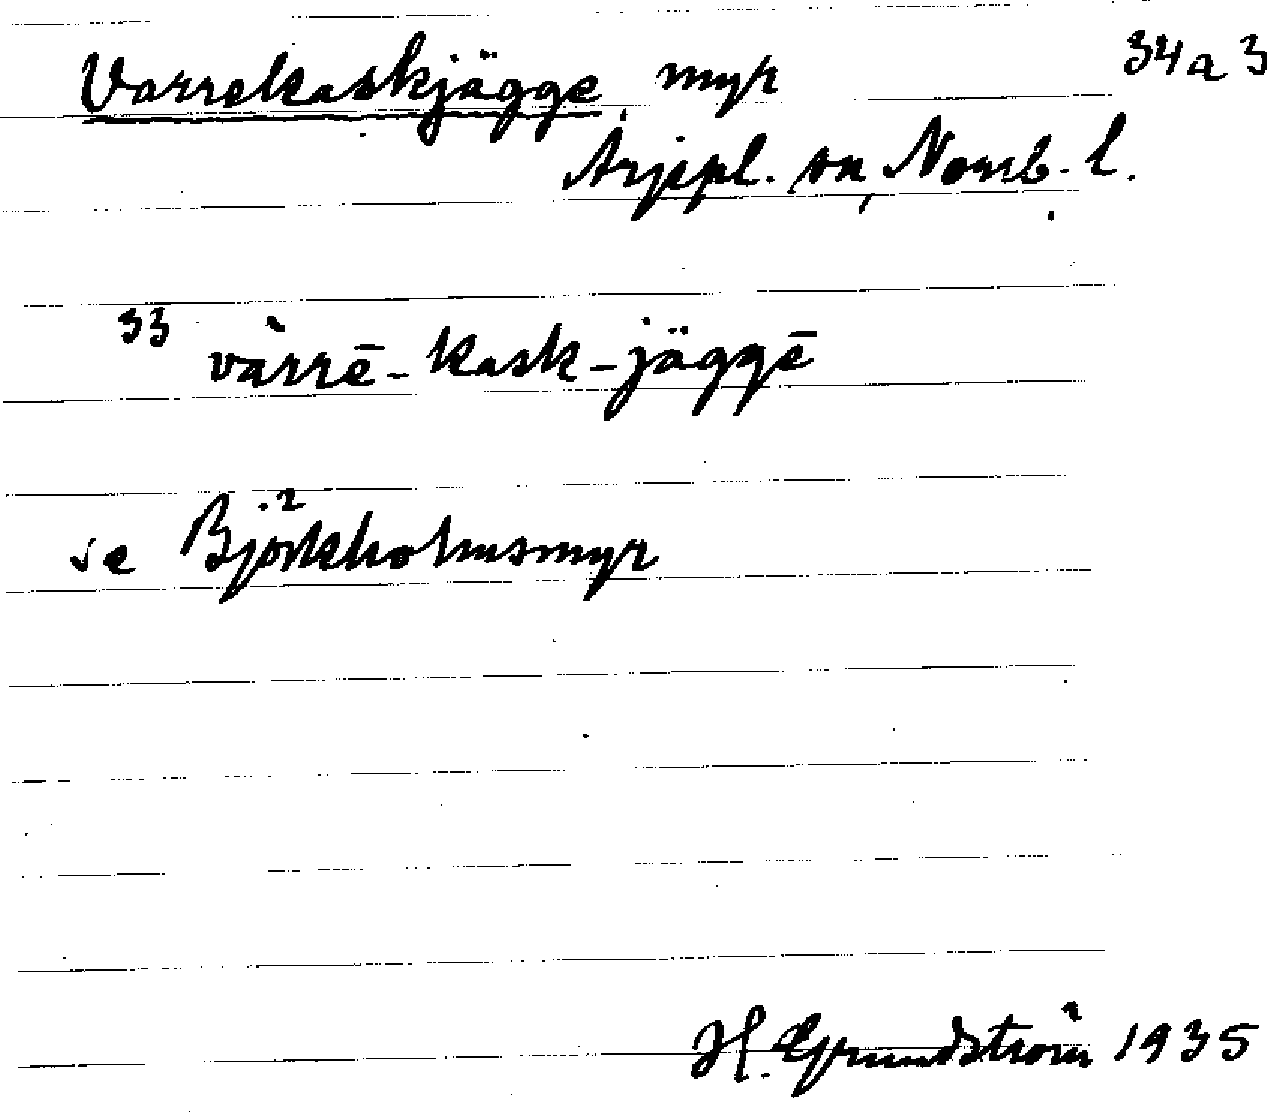 Varrekaskjägge, myr 34a3
Arjepl. sn, Norrb. l.
33 vàrrē-kask-jäggē
se Björkholmsmyr
H. Grundström 1935